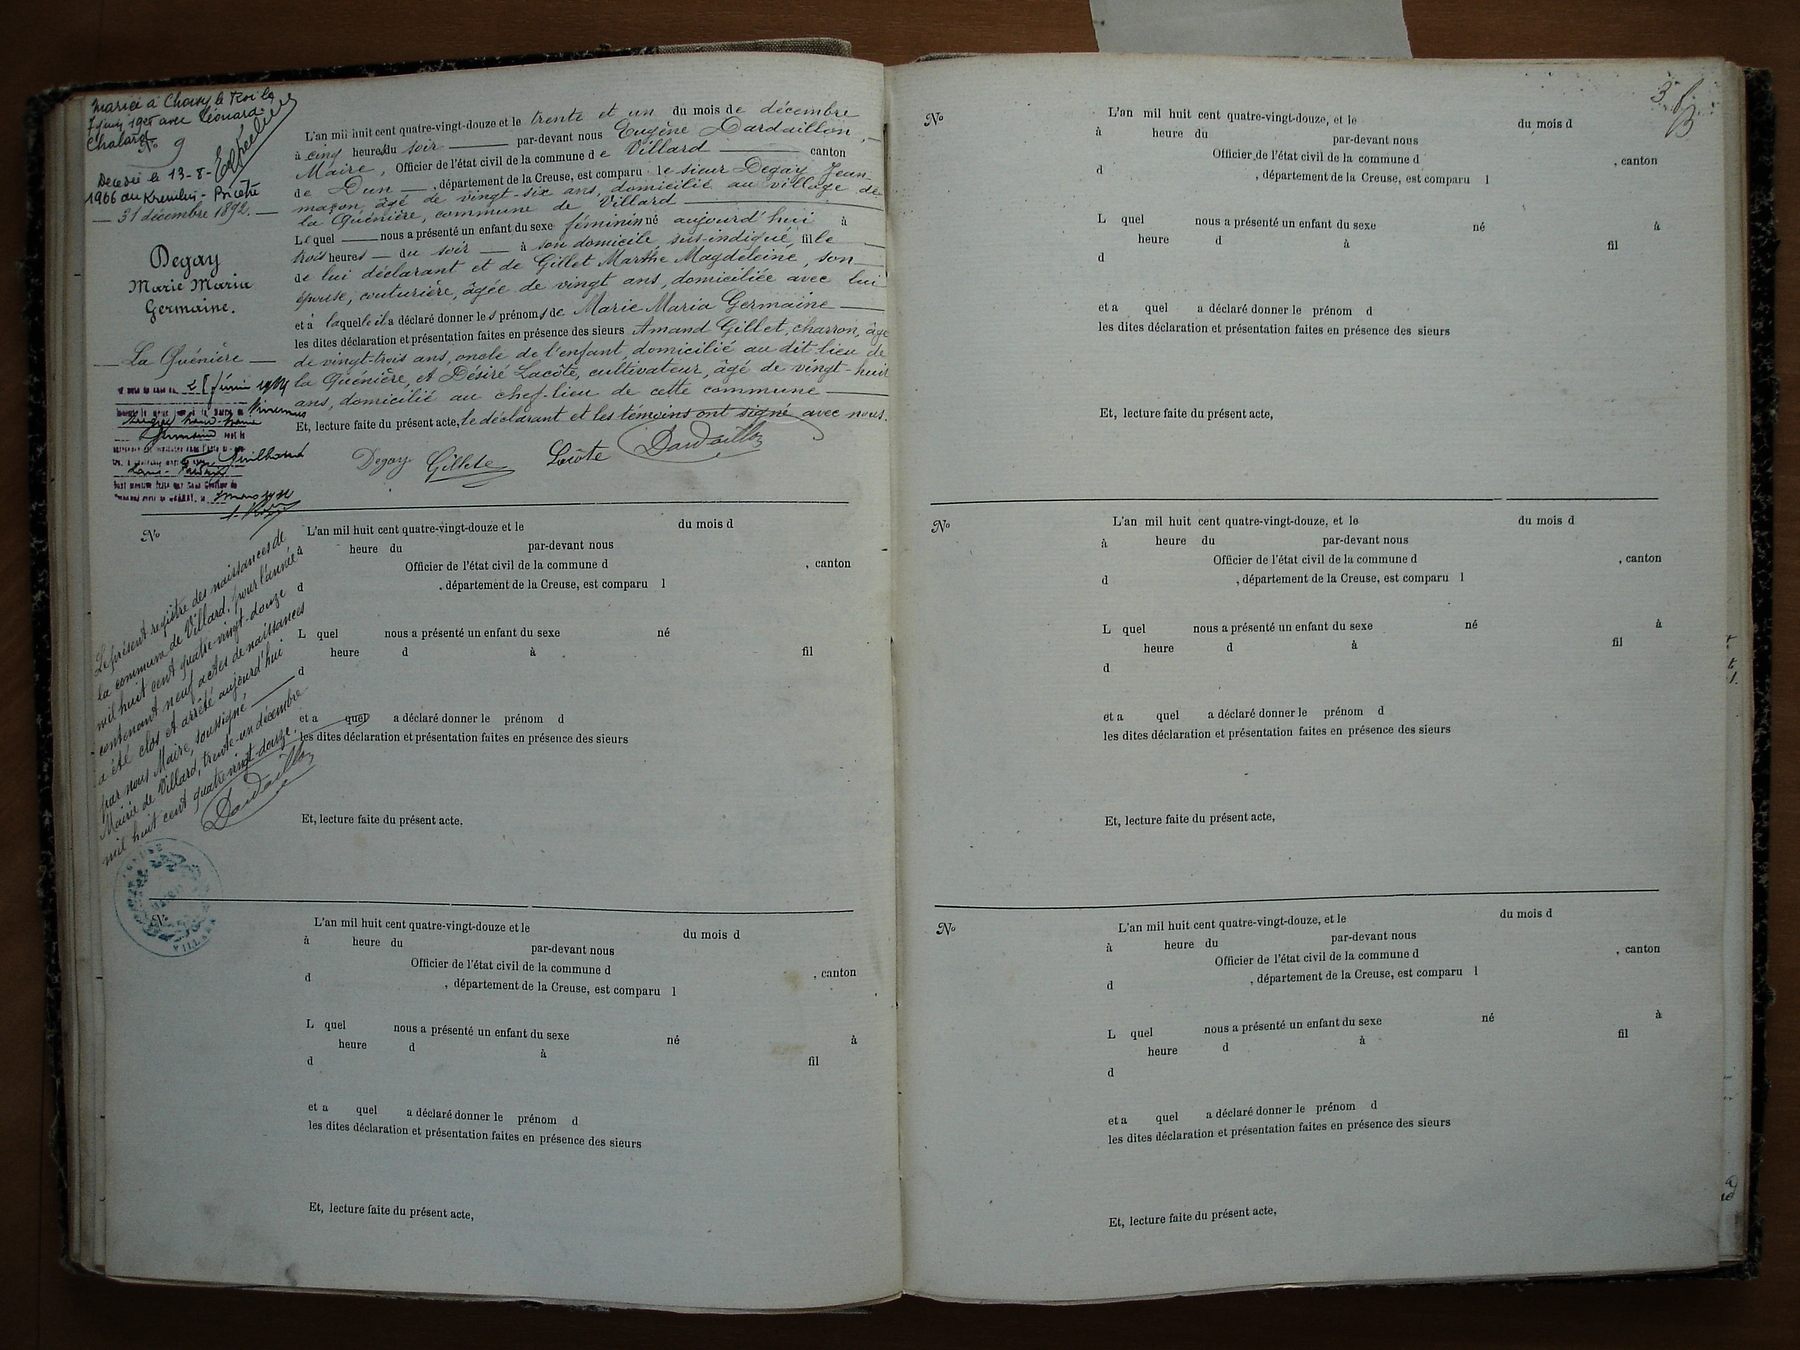 Mariée à Choisy le Roi le
7 juin 1925 avec Léonard
Chalard
No 9
Expédiée
Décédée le 13-8-
1966 au Kremlin-Bicêtre
31 décembre 1892.
Degay
Marie Maria
Germaine.
La Quénière
L'an mil huit cent quatre-vingt-douze et le trente et un du mois de décembre
à cinq heures du soir par-devant nous Eugène Dardaillon,
Maire, Officier de l'état civil de la commune de Villard canton
de Dun, département de la Creuse, est comparu le sieur Degay Jean
maçon, âgé de vingt-six ans, domicilié au village de
la Quénière, commune de Villard
Lequel nous a présenté un enfant du sexe féminin né aujourd'hui à
trois heures du soir à son domicile, sus-indiqué, fille
de lui déclarant et de Gillet Marthe Magdeleine, son
épouse, couturière, âgée de vingt ans, domiciliée avec lui
et à laquelle il a déclaré donner les prénoms de Marie Maria Germaine
les dites déclaration et présentation faites en présence des sieurs Amand Gillet, charron, âgé
de vingt-trois ans, oncle de l'enfant, domicilié au dit lieu de
la Quénière, et Désiré Lacôte, cultivateur, âgé de vingt-huit
ans, domicilié au chef-lieu de cette commune
Et, lecture faite du présent acte, le déclarant et les témoins ont signé avec nous.
Degay Gillet Lacôte Dardaillon
No
L'an mil huit cent quatre-vingt-douze et le du mois d
à heure du par-devant nous
Officier de l'état civil de la commune d , canton
d , département de la Creuse, est comparu l
L quel nous a présenté un enfant du sexe né
heure d à fil
d
et a quel a déclaré donner le prénom d
les dites déclaration et présentation faites en présence des sieurs
Et, lecture faite du présent acte,
Le présent registre des naissances de
la commune de Villard, pour l'année
mil huit cent quatre-vingt-douze
contenant neuf actes de naissances
a été clos et arrêté aujourd'hui
par nous Maire, soussigné
Mairie de Villard, trente-un décembre
mil huit cent quatre-vingt-douze.
Dardaillon
VILLARD
No
L'an mil huit cent quatre-vingt-douze et le du mois d
à heure du par-devant nous
Officier de l'état civil de la commune d , canton
d , département de la Creuse, est comparu l
L quel nous a présenté un enfant du sexe né à
heure d à fil
d
et a quel a déclaré donner le prénom d
les dites déclaration et présentation faites en présence des sieurs
Et, lecture faite du présent acte,
No
L'an mil huit cent quatre-vingt-douze, et le du mois d
à heure du par-devant nous
Officier de l'état civil de la commune d , canton
d , département de la Creuse, est comparu l
L quel nous a présenté un enfant du sexe né à
heure d à fil
d
et a quel a déclaré donner le prénom d
les dites déclaration et présentation faites en présence des sieurs
Et, lecture faite du présent acte,
No
L'an mil huit cent quatre-vingt-douze, et le du mois d
à heure du par-devant nous
Officier de l'état civil de la commune d , canton
d , département de la Creuse, est comparu l
L quel nous a présenté un enfant du sexe né à
heure d à fil
d
et a quel a déclaré donner le prénom d
les dites déclaration et présentation faites en présence des sieurs
Et, lecture faite du présent acte,
No
L'an mil huit cent quatre-vingt-douze, et le du mois d
à heure du par-devant nous
Officier de l'état civil de la commune d , canton
d , département de la Creuse, est comparu l
L quel nous a présenté un enfant du sexe né à
heure d à fil
d
et a quel a déclaré donner le prénom d
les dites déclaration et présentation faites en présence des sieurs
Et, lecture faite du présent acte,